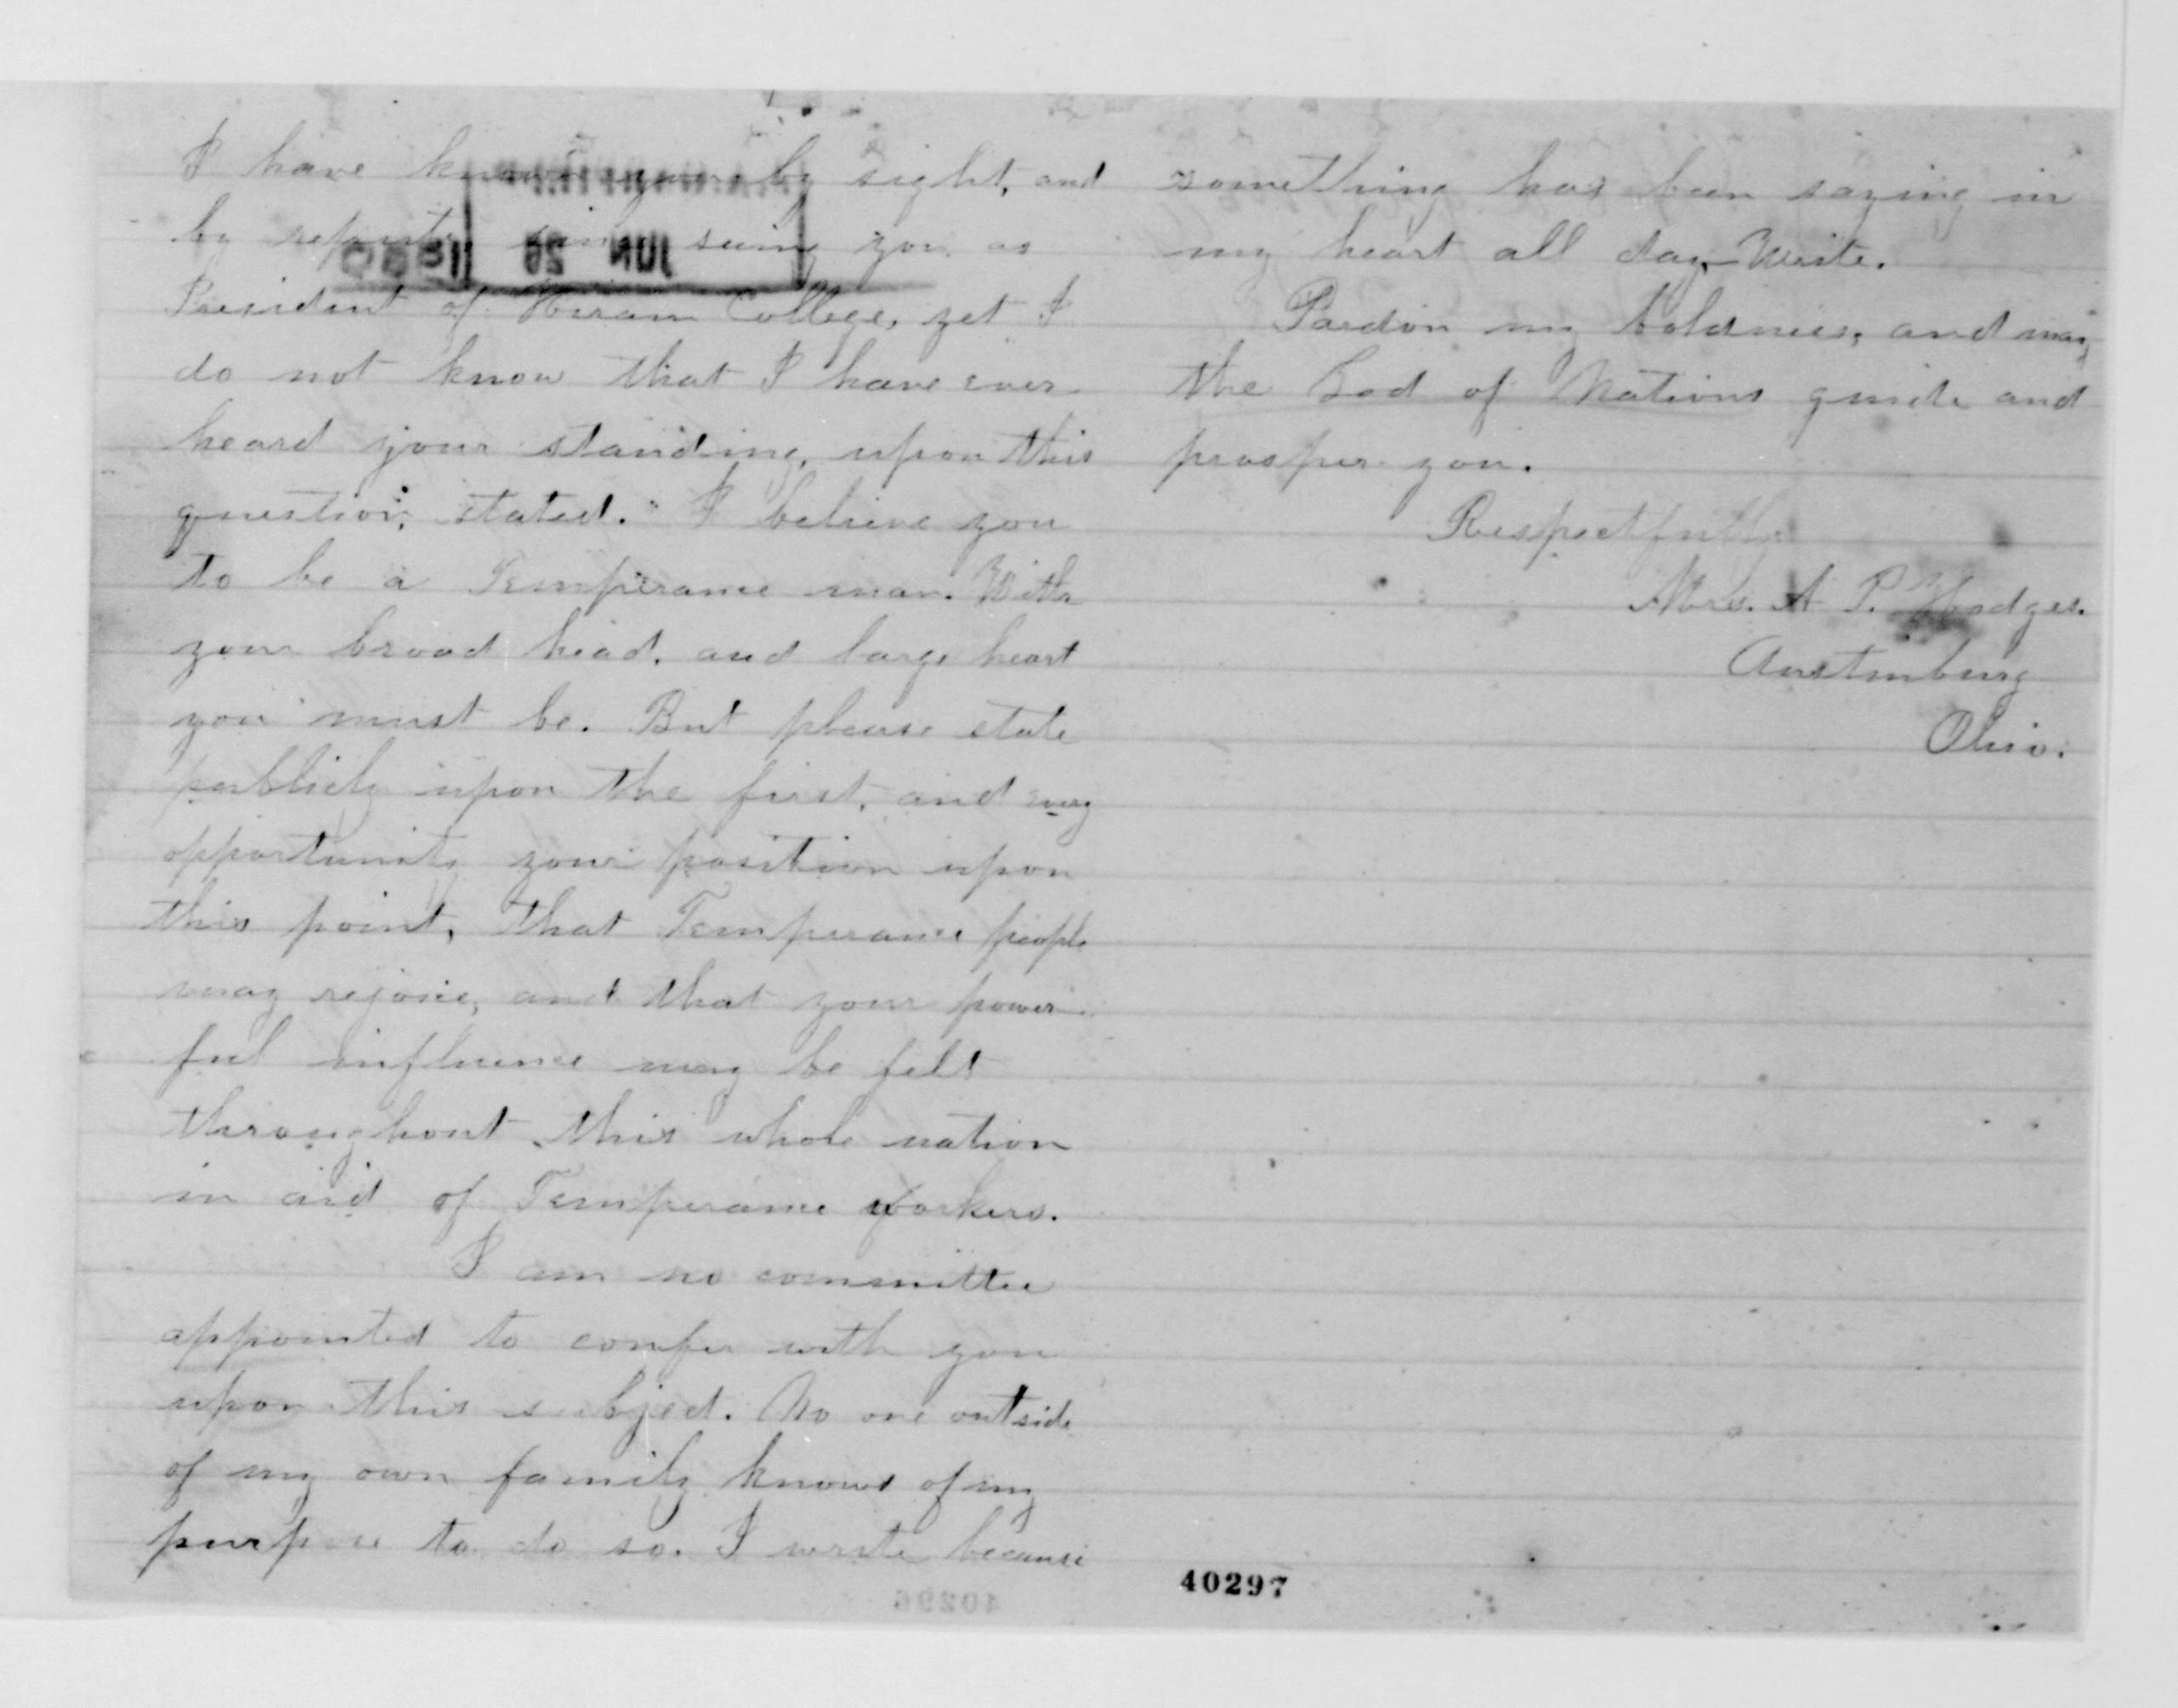 I have known you by sight, and
by reputa since seeing you as
President of Hiram College, yet I
do not know that I have ever
heard your standing, upon this
question, stated. I believe you
to be a Temperance man. With
your broad head, and large heart
you must be. But please state
publicly upon the first, and every
opportunity your position upon
this point, that Temperance people
may rejoice, and that your power-
ful influence may be felt
throughout this whole nation
in aid of Temperance workers.
I am no committee
appointed to confer with you
upon this subject. No one outside
of my own family knows of my
purpose to do so. I write because
40296
something has been saying in
my heart all day–Write.
Pardon my boldness, and may
the God of Nations guide and
prosper you.
Respectfully
Mrs. A P. Hodges.
Austinburg
Ohio.
40297
JUN 26 1880